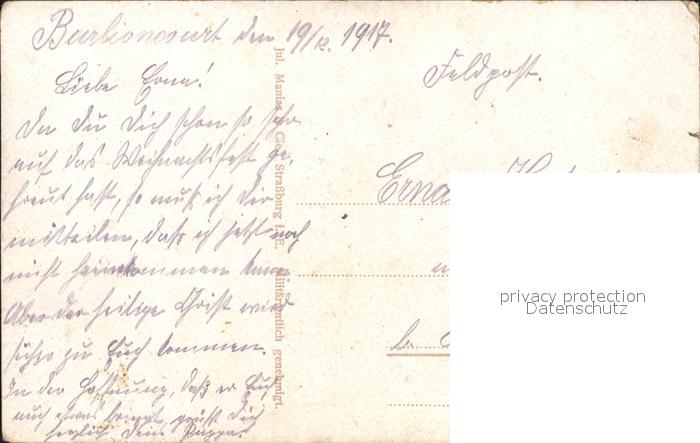 Burlioncourt den 19/12. 1917.
Liebe Erna!
Da du Dich schon so sehr
auf das Weihnachtsfest ge-
freut hast, so muß ich Dir
mitteilen, daß ich jetzt noch
nicht heimkommen kann.
Aber der heilige Christ wird
sicher zu Euch kommen.
In der Hoffnung, daß er Euch
auch etwas bringt, grüßt Dich
herzlich Dein Pappa.
Jul. Manias & Cie., Straßburg i. E. Militäramtlich genehmigt.
Feldpost.
Erna
b.
privacy protection
Datenschutz